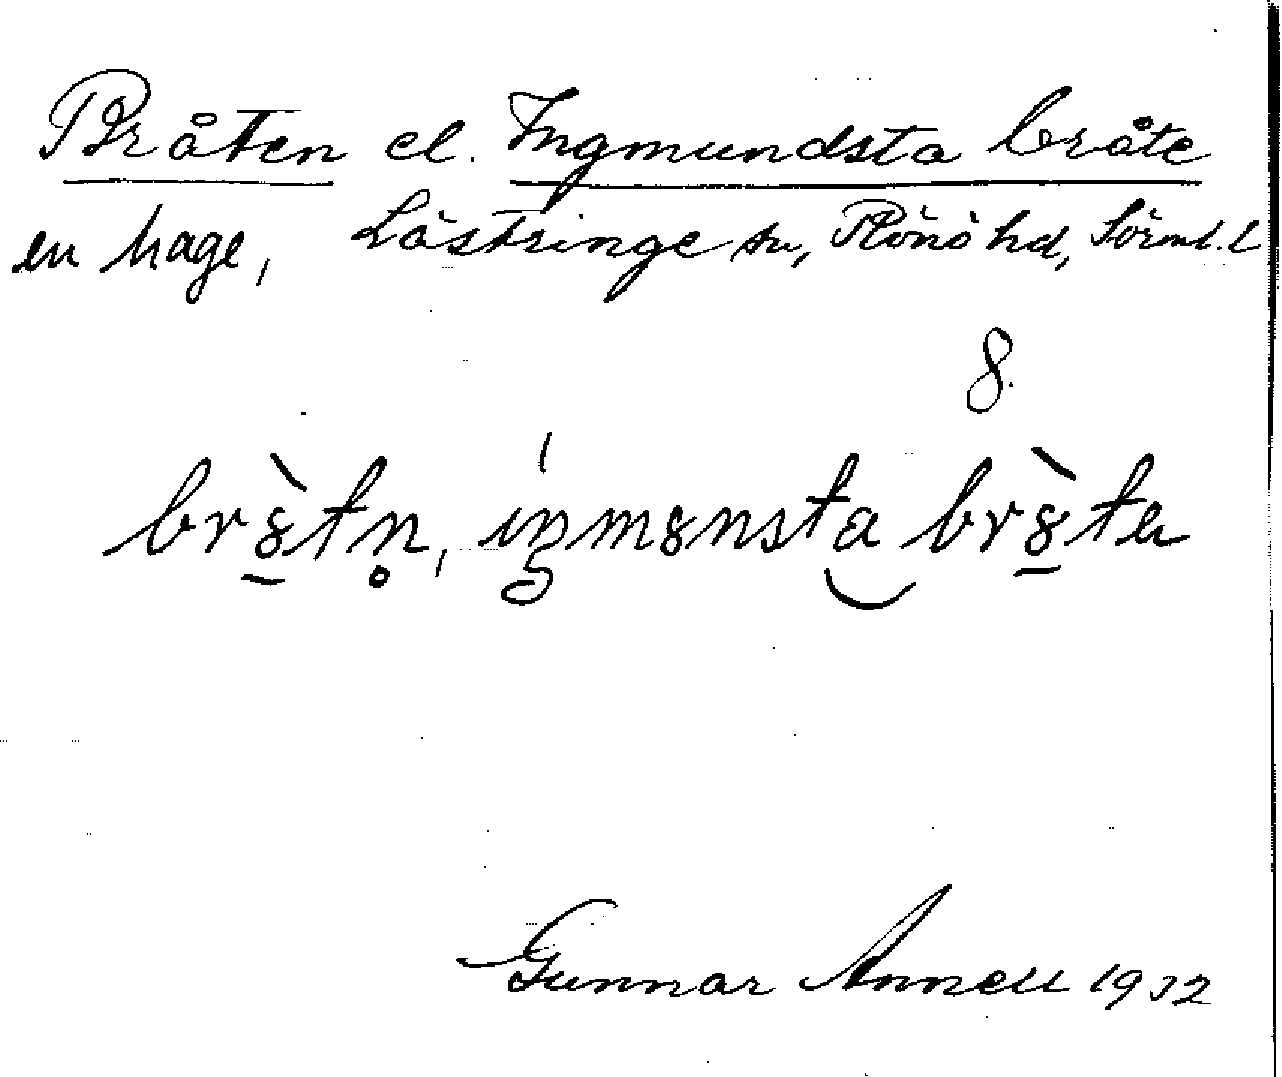 Bråten el. Ingmundsta bråte
en hage, Lästringe sn, Rönö hd, Sörml. l
8.
brȣ̀tn̥, íŋmȣnsta brȣ̀ta
Gunnar Annell 1932